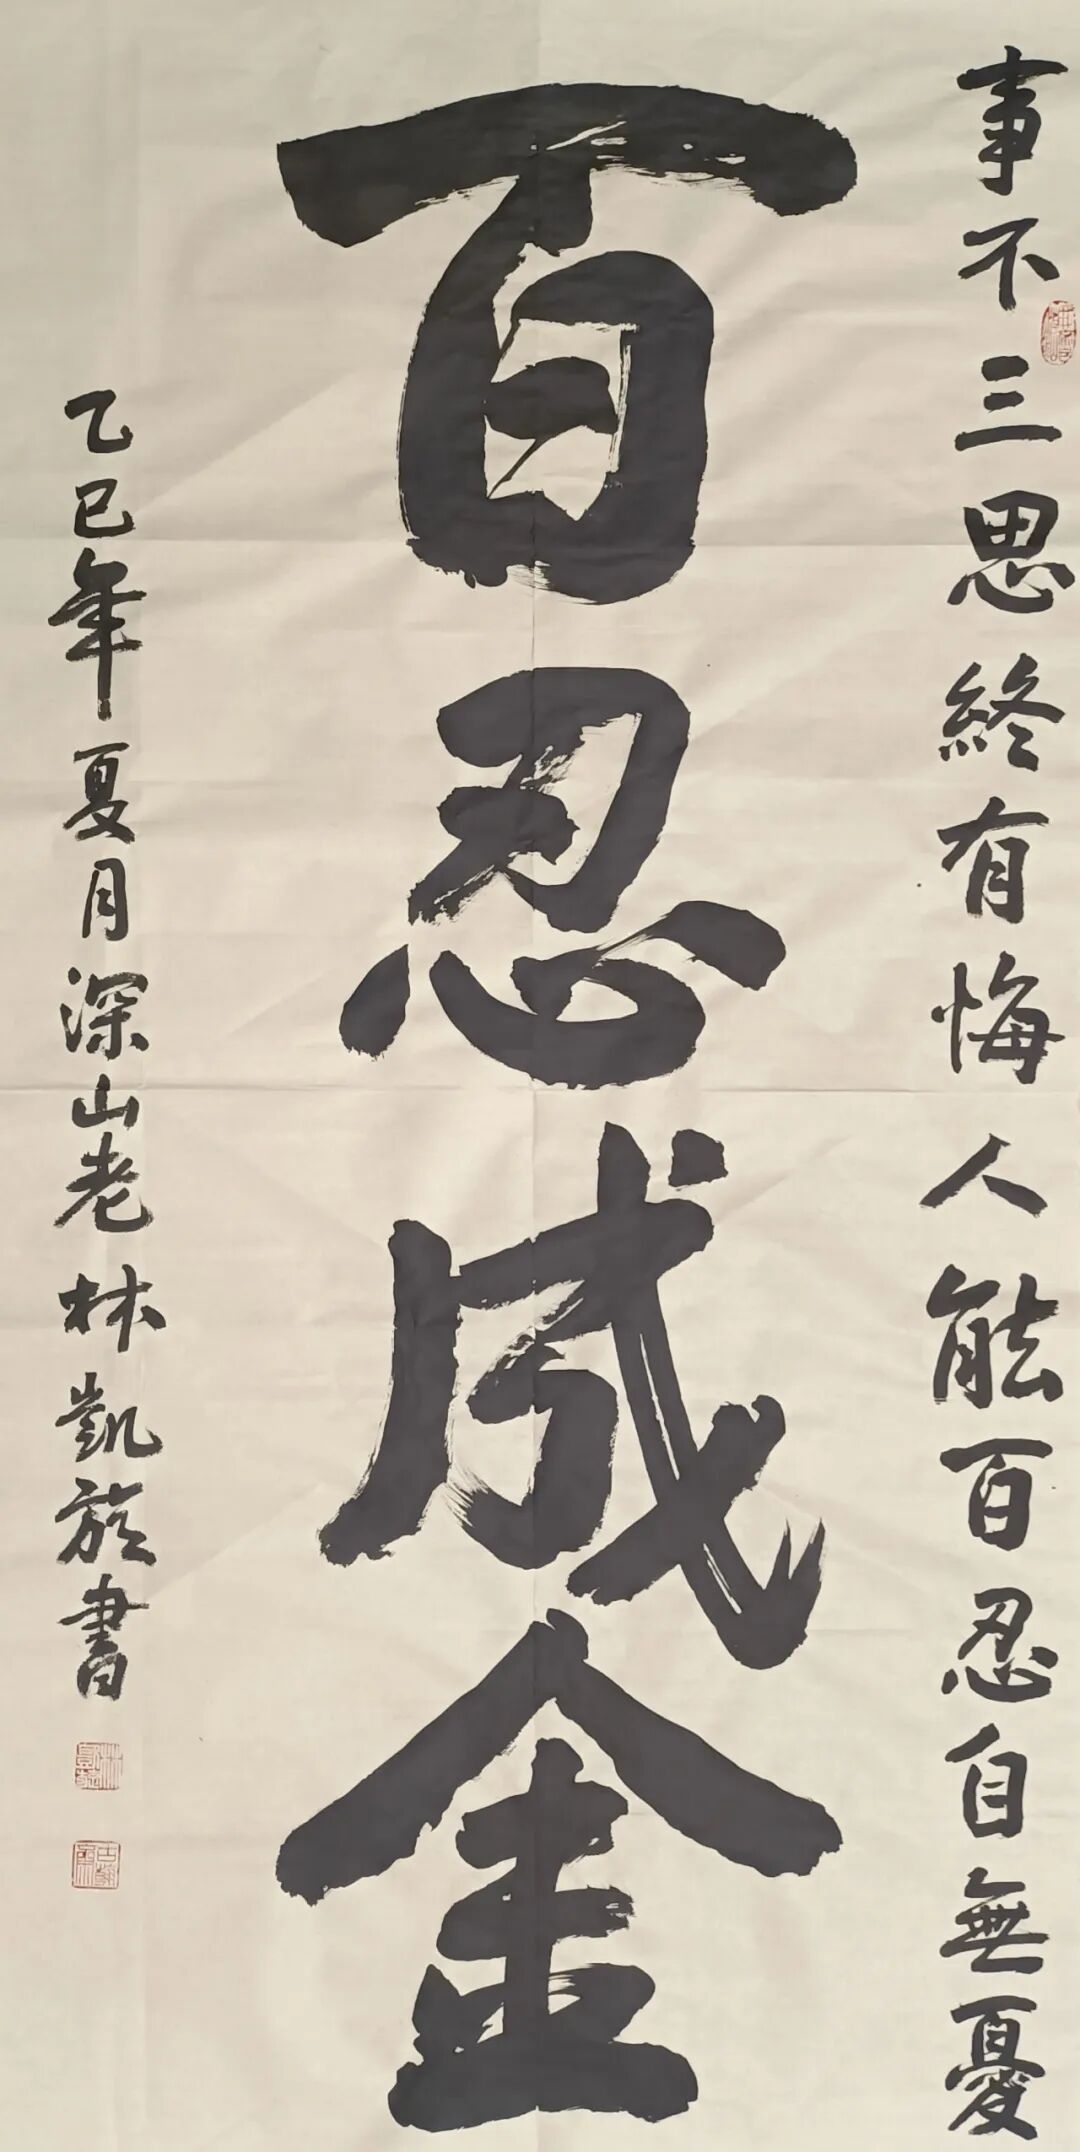 事不三思終有悔人能百忍自無憂
百忍成金
乙巳年夏月深山老林凱旋書